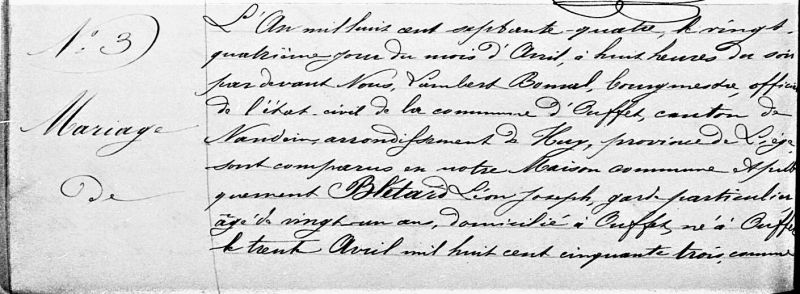 N° 3
Mariage
De
L'An mil huit cent septante-quatre, le vingt-
quatrième jour du mois d'Avril, à huit heures du soir
par devant Nous, Lambert Bonmal, bourgmestre, officier
de l'état-civil de la commune d'Ouffet, canton de
Nandrin, arrondissement de Huy, province de Liège
sont comparus en notre Maison commune et publi
quement Blétard Léon Joseph, garde particulier
âgé de vingt un ans, domicilié à Ouffet, né à Ouffet
le trente Avril mil huit cent cinquante trois, comme